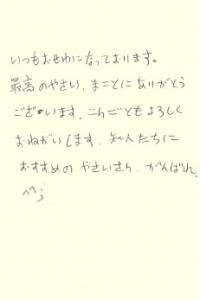 いつもおせわになっております。
最高のやさい、まことにありがとう
ございます、これごともよろしく
おねがいします、知人たちに
おすすめの やさいきり、がんばれ、